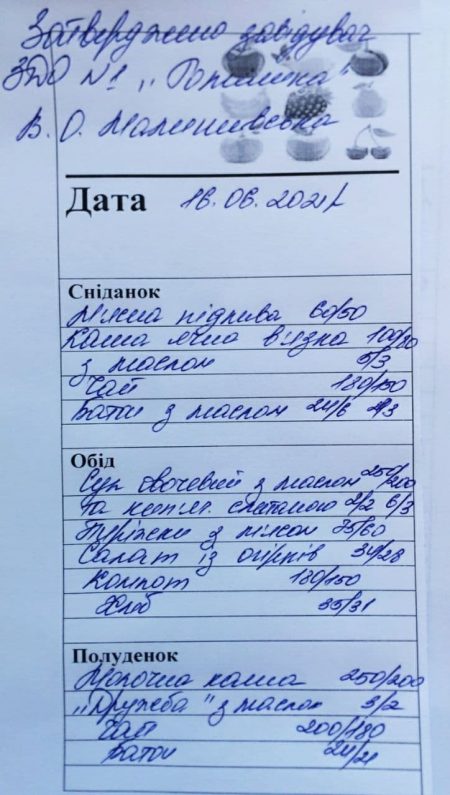 Затверджено завідувач
ЗДО №1 „Ромашка"
В. О. Малишевська
Дата 16.06.2021
Сніданок
М'ясна підлива 60/50
Каша ячна в'язка 100/80
з маслом 5/3
Чай 180/150
Батон з маслом 24/6
Обід
Суп овочевий з маслом 250/200
та кип'яч. сметаною 2/2 6/3
з м'ясом 75/60
Салат із огірків 34/28
Компот 180/150
Хліб 35/31
Полуденок
Молочна каша 250/200
„Дружба" з маслом 3/2
Чай 200/180
Батон 24/21